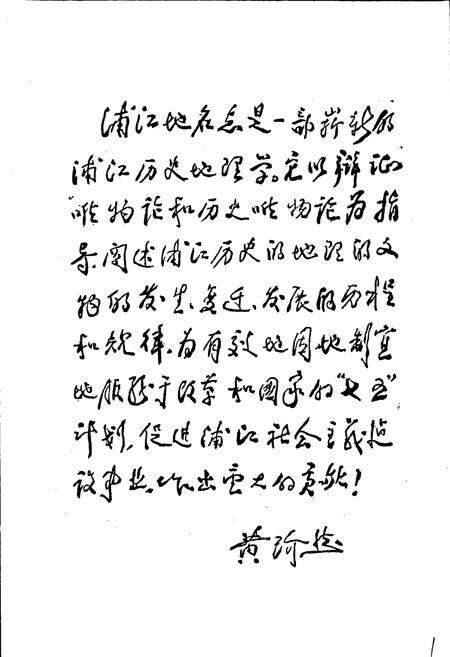 浦江地名志是一部崭新的
浦江历史地理学。它以辩证
唯物论和历史唯物论为指
导,阐述浦江历史的地理的文
物的发生、变迁、发展的历程
和规律,为有效地因地制宜
地服务于改革和国家的“七五”
计划,促进浦江社会主义建
设事业,作出更大的贡献!
黄
1